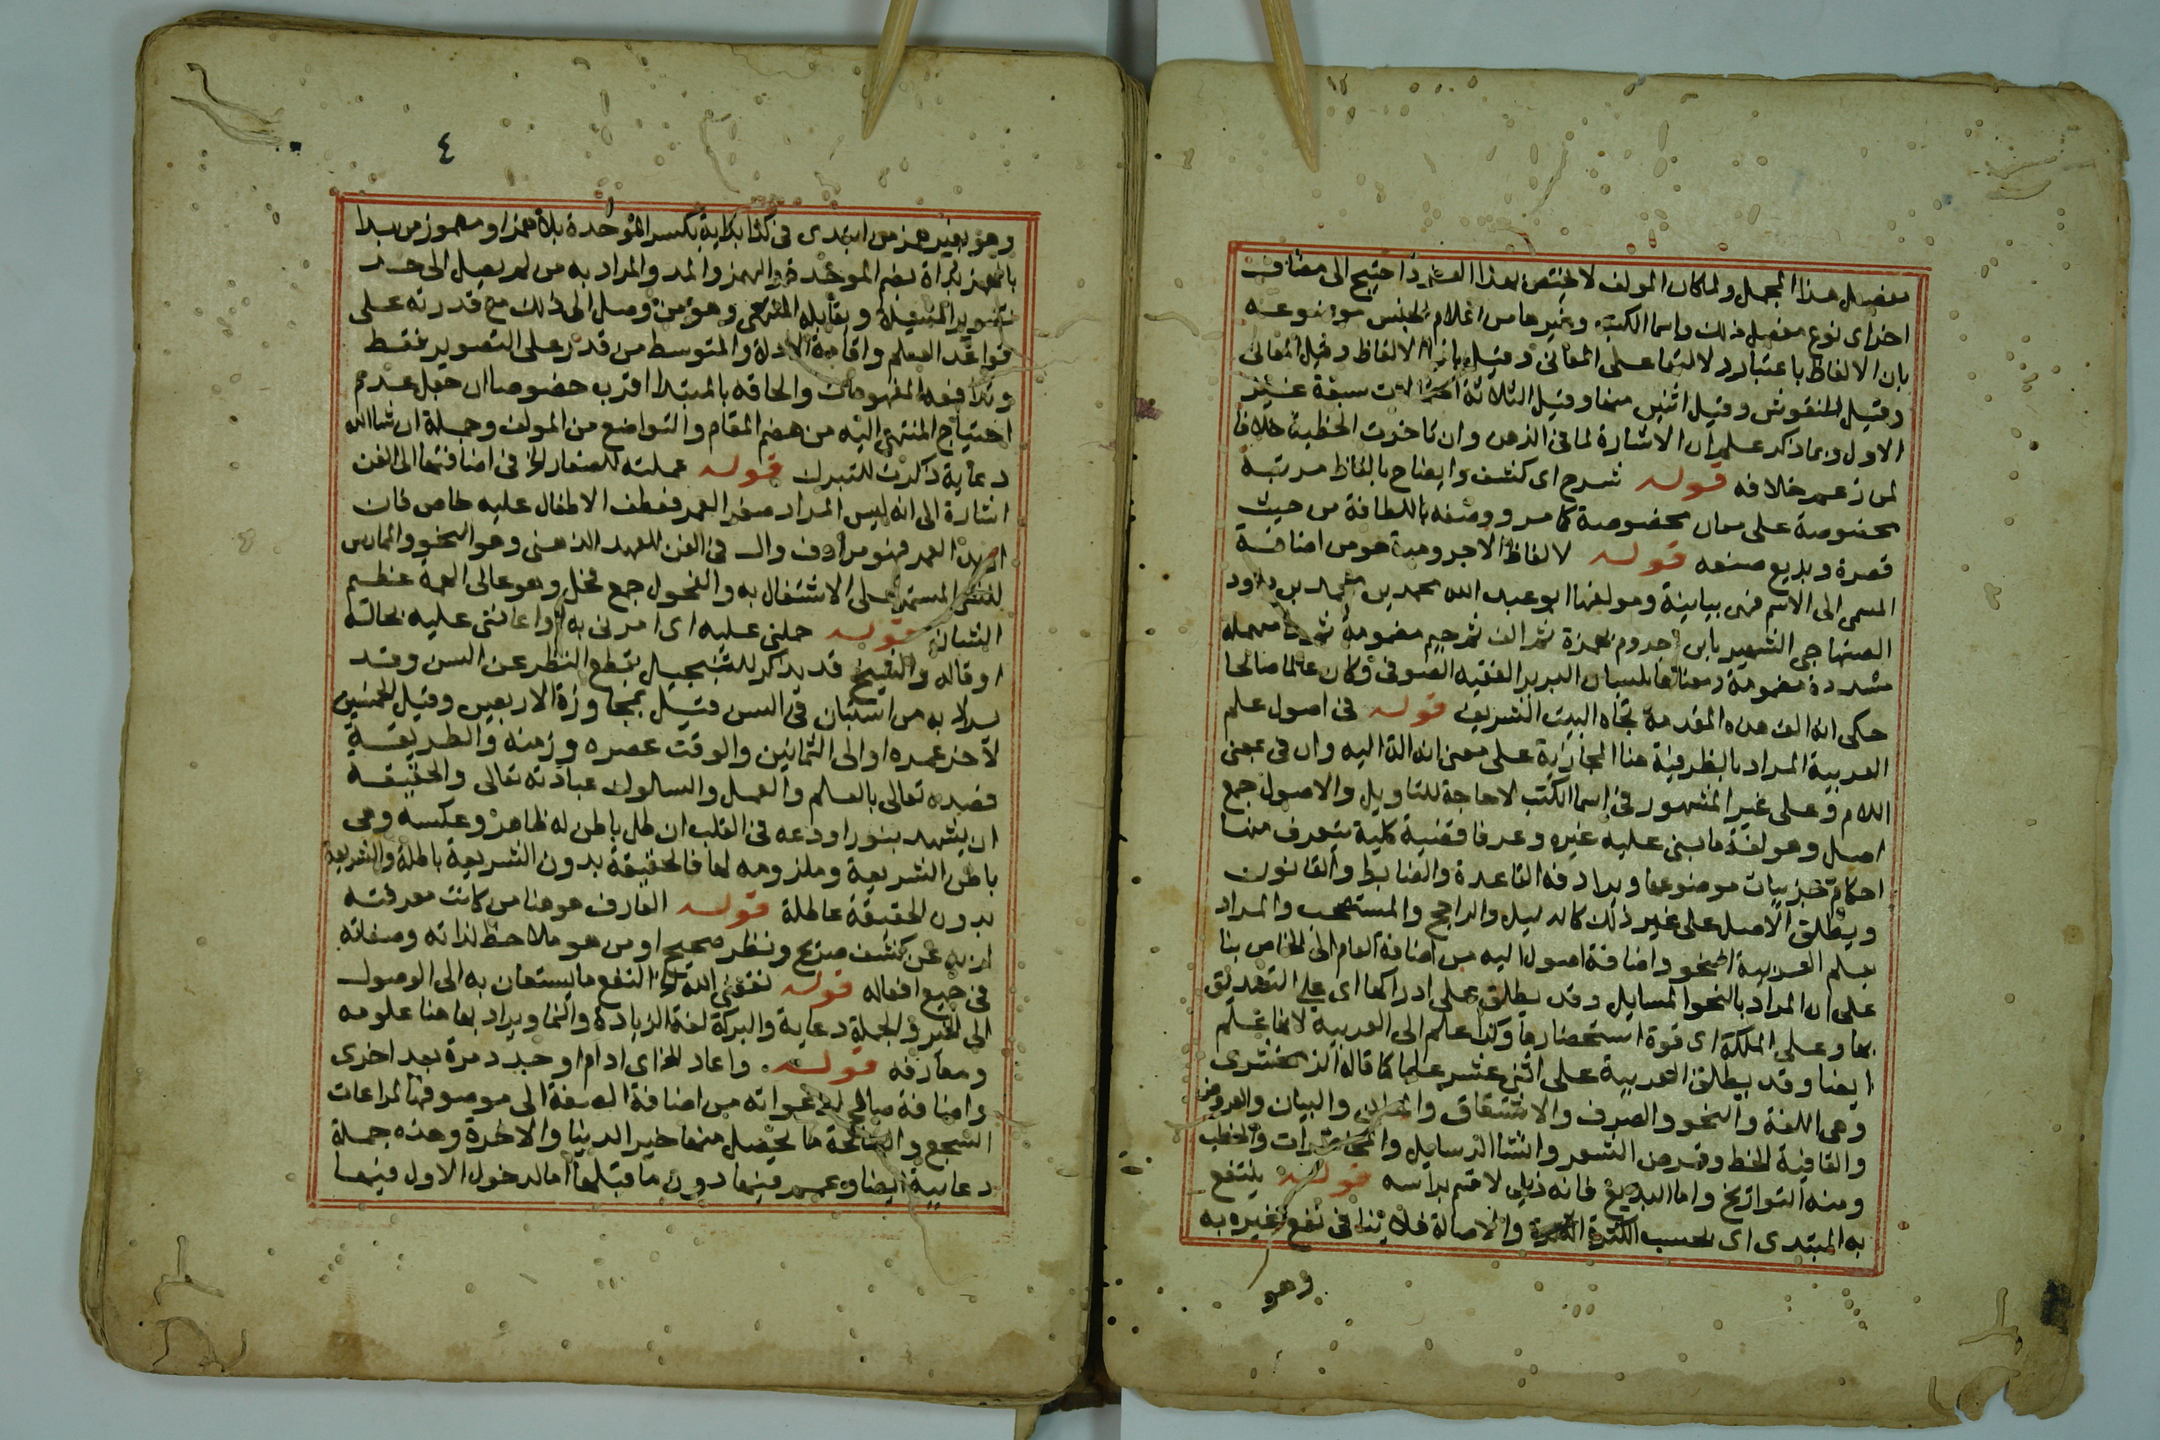 مفصل هذا المجمل ولما كان المولف لا يختص بهذا الفرد احتيج الى مضاف
اخر اى نوع مفصل ذلك واسما الكتب وغيرها من اعلام الجنس موضوعه
بان الالفاظ باعتبار دلالتها على المعانى وقيل بازا الالفاظ وقيل المعانى
وقيل النقوش وقيل اثنين منها وقيل الثلاثة احتمالات سبعة غير
الاول وبما ذكر علم ان الاشارة لما فى الذهن وان تاخرت الخطبة خلافا
لمن زعم خلافه قوله شرح اى كشف وايضاح بالفاظ مرتبة
مخصوصة على معان مخصوصة كما مر ووصفه باللطافة من حيث
قصره وبديع صنعه قوله لالفاظ الاجرومية هو من اضافة
المسمى الى الاسم فهى بيانية ومولفها ابو عبد الله محمد بن محمد بن داود
الصنهاجى الشهير بابن اجروم بهمزة ثم الف ثم جيم مضمومة ثم را مهملة
مشددة مضمومة ومعناها بلسان البربر الفقيه الصوفى وكان عالما صالحا
حكى انه الف هذه المقدمة تجاه البيت الشريف قوله فى اصول علم
العربية المراد بالظرفية هنا المجازية على معنى انه الة اليه وان فى بمعنى
اللام وعلى غير المشهور فى اسما الكتب لا حاجة للتاويل والاصول جمع
اصل وهو لغة ما بنى عليه غيره وعرفا قضية كلية يتعرف منها
احكام جزييات موضوعها ويرادفه القاعدة والضابط والقانون
ويطلق الاصل على غير ذلك كالدليل والراجح والمستصحب والمراد
بعلم العربية النحو واضافة اصول اليه من اضافة العام الى الخاص بنا
على ان المراد بالنحو المسايل وقد يطلق على ادراكها اى على التصديق
بها وعلى الملكة اى قوة استحضارها وكذا علم الى العربية لانها علم
ايضا وقد يطلق العربية على اثنى عشر علما كما قاله الزمخشرى
وهى اللغة والنحو والصرف والاشتقاق والمعانى والبيان والعروض
والقافية الخط وقرض الشعر وانشا الرسايل والمحاضرات والخطب
ومنه التواريخ واما البديع فانه ذيل لا قسم براسه قوله ينتفع
به المبتدى اى بحسب الكثرة والاصالة فلا ينافى نفع غيره به
وهو
٤
وهو بغير همز من ابتدى فى كذا بداية بكسر الموحدة بلا همز او مهموز من بدا
بالهمز بداة بضم الموحدة والهمز والمد والمراد به من لم يصل الى حد
تصوير المسيلة ويقابله المنتهى وهو من وصل الى ذلك مع قدرته على
قواعد العلم واقامة الادلة والمتوسط من قدر على التصوير فقط
وتدافعه المفهومات والحاقه بالمبتدا اقرب خصوصا ان جعل عدم
احتياج المنتهى اليه من هضم المقام والتواضع من المولف وجملة ان شا الله
دعاية ذكرت للتبرك قوله عملته للصغار الخ فى اضافتها الى الفن
اشارة الى انه ليس المراد صغر العمر فعطف الاطفال عليه خاص فان
اريد العمر فهو مرادف وال فى الفن للعهد الذهنى وهو النحو والممارس
للشى المستمر على الاشتغال به والفحول جمع فحل وهو عالى الهمة عظيم
الشان قوله حملنى عليه اى امرنى به او اعاننى عليه بحالته
او قاله والشيخ قد يذكر للتبجيل بقطع النظر عن السن وقد
يراد به من استبان فى السن قيل بمجاوزة الاربعين وقيل الخمسين
لاخر عمره او الى الثمانين والوقت عصره وزمنه والطريقة
قصده تعالى بالعلم والعمل والسلوك عبادته تعالى والحقيقة
ان يشهد بنور اودعه فى القلب ان كل باطن له ظاهر وعكسه وهى
باطن الشريعة وملزومه لها فالحقيقة بدون الشريعة باطلة والشريعة
بدون الحقيقة عاطلة قوله العارف هو هنا من كانت معرفته
لربه عن كشف صريح ونظر صحيح او من هو ملاحظ لذاته وصفاته
فى جميع افعاله قوله نفعنى الله النفع ما يستعان به الى الوصول
الى الخير والجملة دعاية والبركة لغة الزيادة والنما ويراد بها هنا علومه
ومعارفه قوله واعاد الخ اى ادام او جدد مرة بعد اخرى
واضافة صالح لدعواته من اضافة الصفة الى موصوفها لمراعات
السجع والصالحة ما يحصل منها خير الدنيا والاخرة وهذه جملة
دعايية ايضا وعمم فيها دون ما قبلها اما لدخول الاول فيها